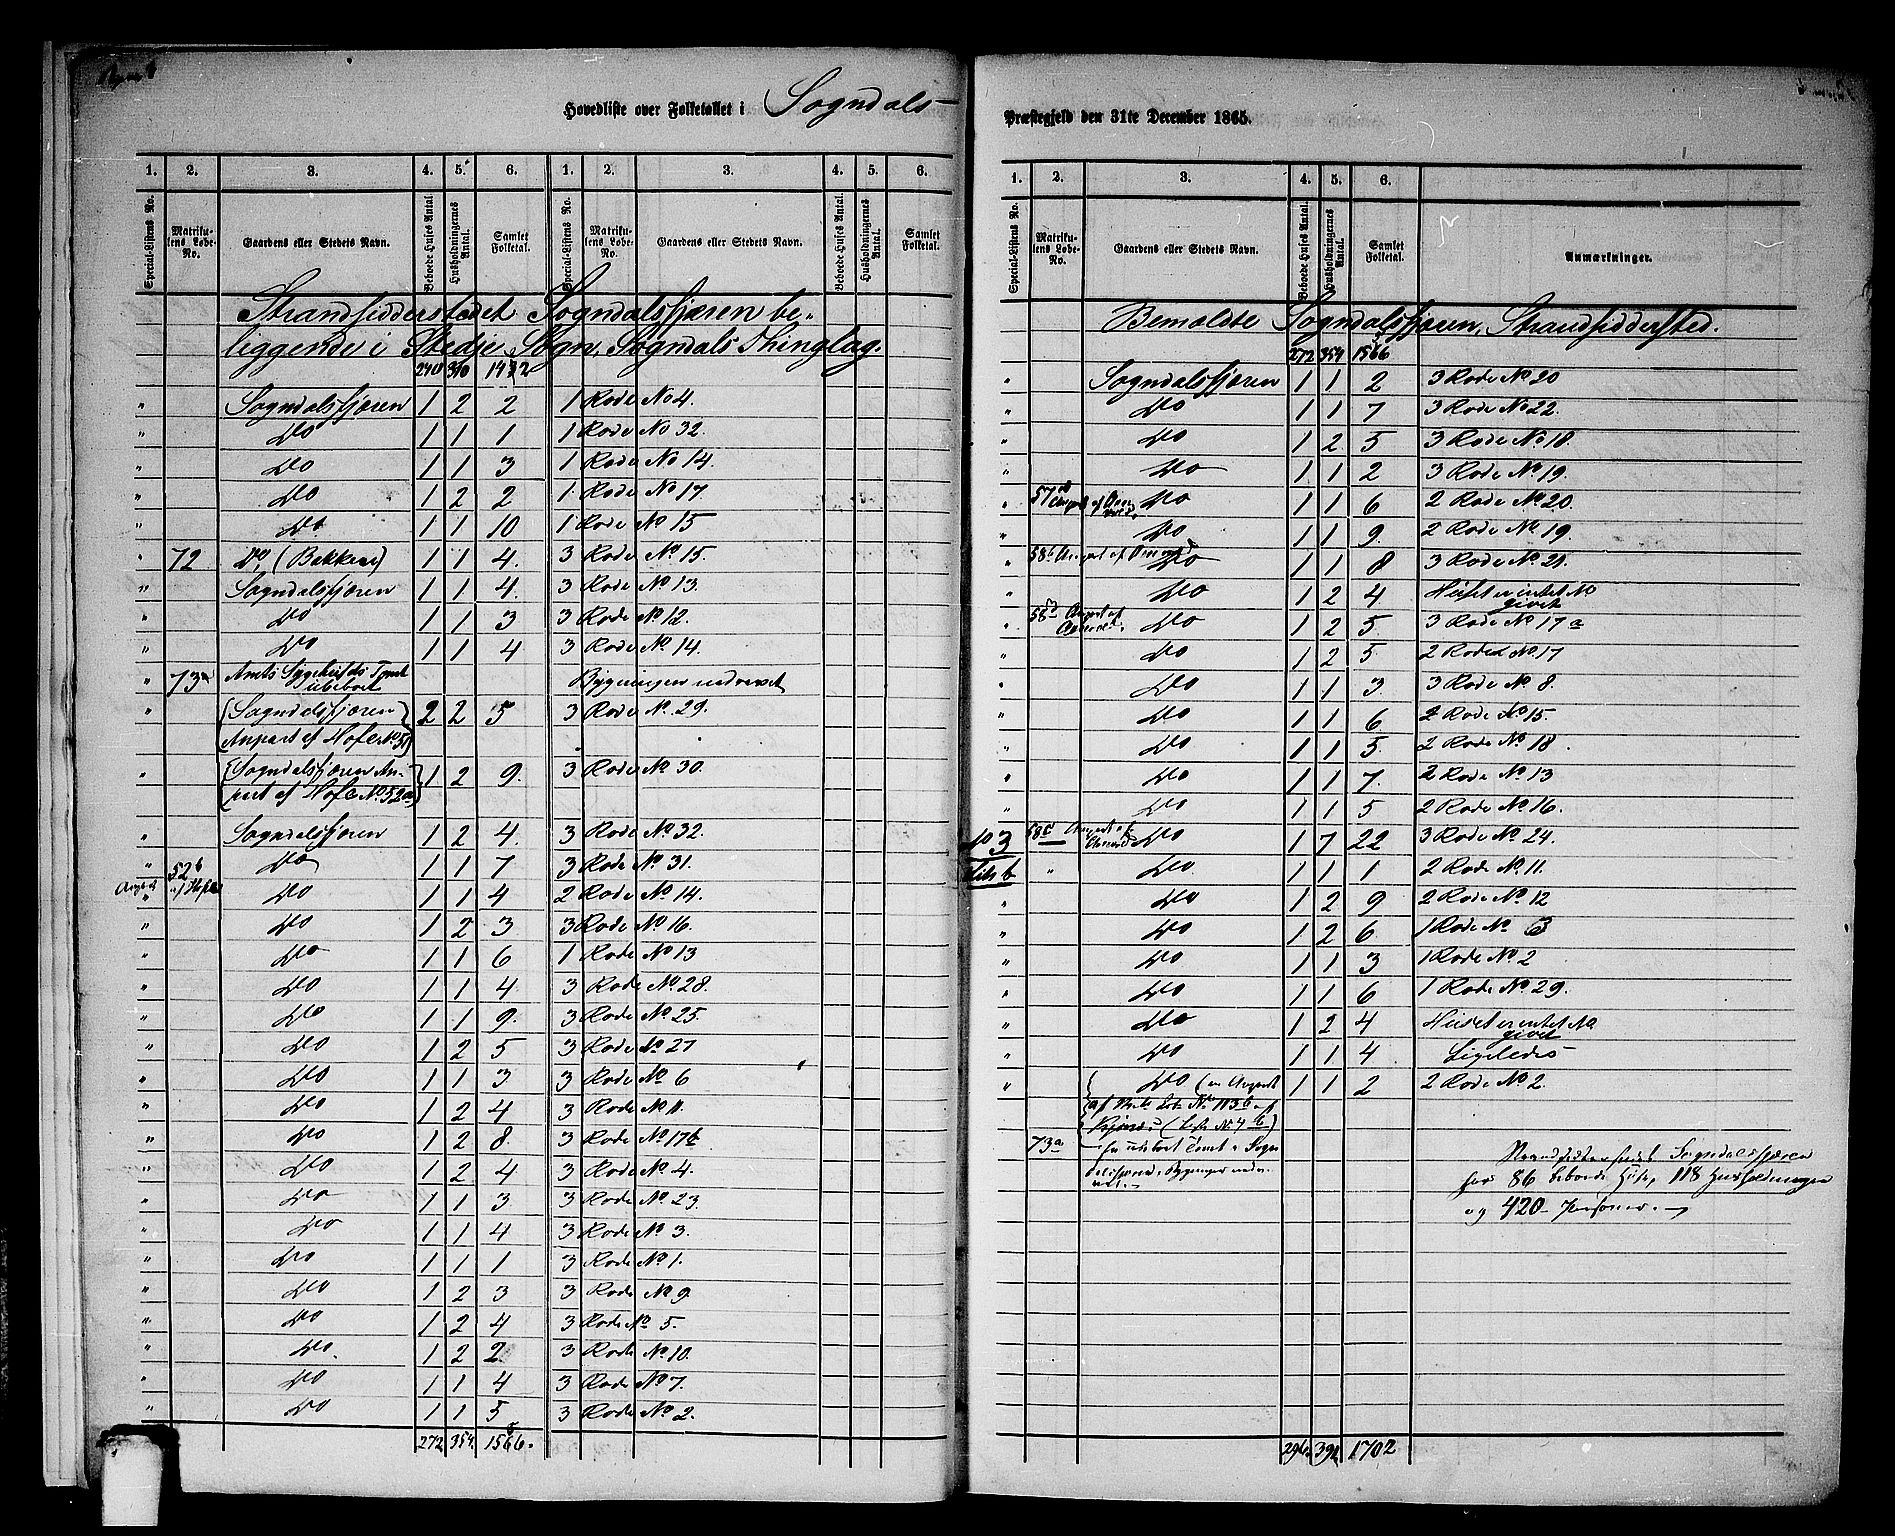 Hovedliste over Folketallet i Sogndals-
1. 2. 3. 4. 5. 6. 1. 2. 3. 4. 5. 6.
Special-Listens No. Matrikulens Løbe-No. Gaardens eller Stedets Navn. Beboede Huses Antal Husholdningernes Antal. Samlet Folketal. Special-Listens No. Matrikulens Løbe-No. Gaardens eller Stedets Navn. Beboede Huses Antal Husholdningernes Antal. Samlet Folketal.
Strandsidderstedet Sogndalsfjæren be-
liggende i Stedje Sogn, Sogndals Thinglag.
240 310 1412
" Sogndalsfjæren 1 2 2 1 Rode No 4.
" Do 1 1 1 1 Rode No 32.
" Do 1 1 3 1 Rode No 14.
" Do 1 2 2 1 Rode No 17.
" Do 1 1 10 1 Rode No 15
" 72 Do, (Bakken) 1 1 4. 3 Rode No. 15.
" Sogndalsfjæren 1 1 4. 3 Rode No. 13.
" Do 1 1 3 3 Rode No. 12.
" Do 1 1 4 3 Rode No. 14.
" 73a Amts Sygehusets Tomt
ubeboet Bygningen nedrevet
" {Sogndalsfjæren} 2 2 5 3 Rode No. 29.
{Anpart af Hofe No. 51}
" {Sogndalsfjæren An-} 1 2 9. 3 Rode No. 30.
{part af Hofe No. 52a}
" Sogndalsfjæren 1 2 4. 3 Rode No. 32.
" 52b Do 1 1 7 3 Rode No. 31.
Anpart af Hofe
" Do 1 1 4 2 Rode No. 14.
" Do 1 2 3 3 Rode No. 16.
" Do 1 1 6 1 Rode No. 13
" Do 1 1 4. 3 Rode No. 28.
" Do 1 1 9. 3 Rode No. 25.
" Do 1 2 5 3 Rode No 27
" Do 1 1 3 3 Rode No 6
" Do 1 2 4 3 Rode No 11.
" Do 1 2 8. 3 Rode No. 17b
" Do 1 2 4 3 Rode No. 4.
" Do 1 1 3 3 Rode No. 23.
" Do 1 1 4 3 Rode No. 3.
" Do 1 1 1 3 Rode No. 1.
" Do 1 2 3 3 Rode No. 9.
" Do 1 2 4 3 Rode No 5.
" Do. 1 2 2 3 Rode No. 10.
" Do 1 1 4 3 Rode No 7.
" Do 1 1 5 3 Rode No. 2.
272 354. 1566.
Præstegjeld den 31te December 1865.
1. 2. 3. 4. 5. 6.
Special-Listens No. Matrikulens Løbe-No. Gaardens eller Stedets Navn. Beboede Huses Antal. Husholdningernes Antal. Samlet Folketal. Anmærkninger.
Bemeldte Sogndalsfjæren, Strandsiddersted.
272 354 1566
" Sogndalsfjæren 1 1 2 3 Rode No 20
" Do 1 1 7 3 Rode No 22.
" Do 1 2 5 3 Rode No 10.
" Do 1 1 2 3 Rode No 19.
" 57 Do 1 1 6 2 Rode No. 20.
" Do 1 1 9. 2 Rode No. 19.
" 58b Do 1 1 8 3 Rode No. 21.
" Do 1 2 4 Huset er intet No
givet
" 58 Anpart af Do 1 2 5. 3 Rode No 17a
" Do 1 2 5 2 Rode No 17
" Do 1 1 3. 3 Rode No 8.
" Do 1 1 6 2 Rode No. 15.
" Do 1 1 5 2 Rode No 18.
" Do 1 1 7. 2 Rode No 13
" Do 1 1 5 2 Rode No 16.
103 58c Anpart af Do 1 7 22 3 Rode No. 24.
" Do. 1 1 1 2 Rode No. 11.
" Do 1 2 9 2 Rode No. 12
" Do 1 2 6. 1 Rode No
" Do 1 1 3 1 Rode No. 2
" Do 1 1 6 1 Rode No. 29.
" Do 1 2 4 Huset er intet No
givet
" Do 1 1 4 Ligeledes
" {Do (en Anpart 1 1 2 2 Rode No 2.
af No. 113b af
(Liste No. 4b)
73a En ubeboet Tomt i Sogn-
dalsfjæren, Bygninger nedre-
vet.
Strandsidderstedet Sogndalsfjæren
har 86 beboede Huse, 118 Husholdninger
og 420 Personer.
296. 392 1702